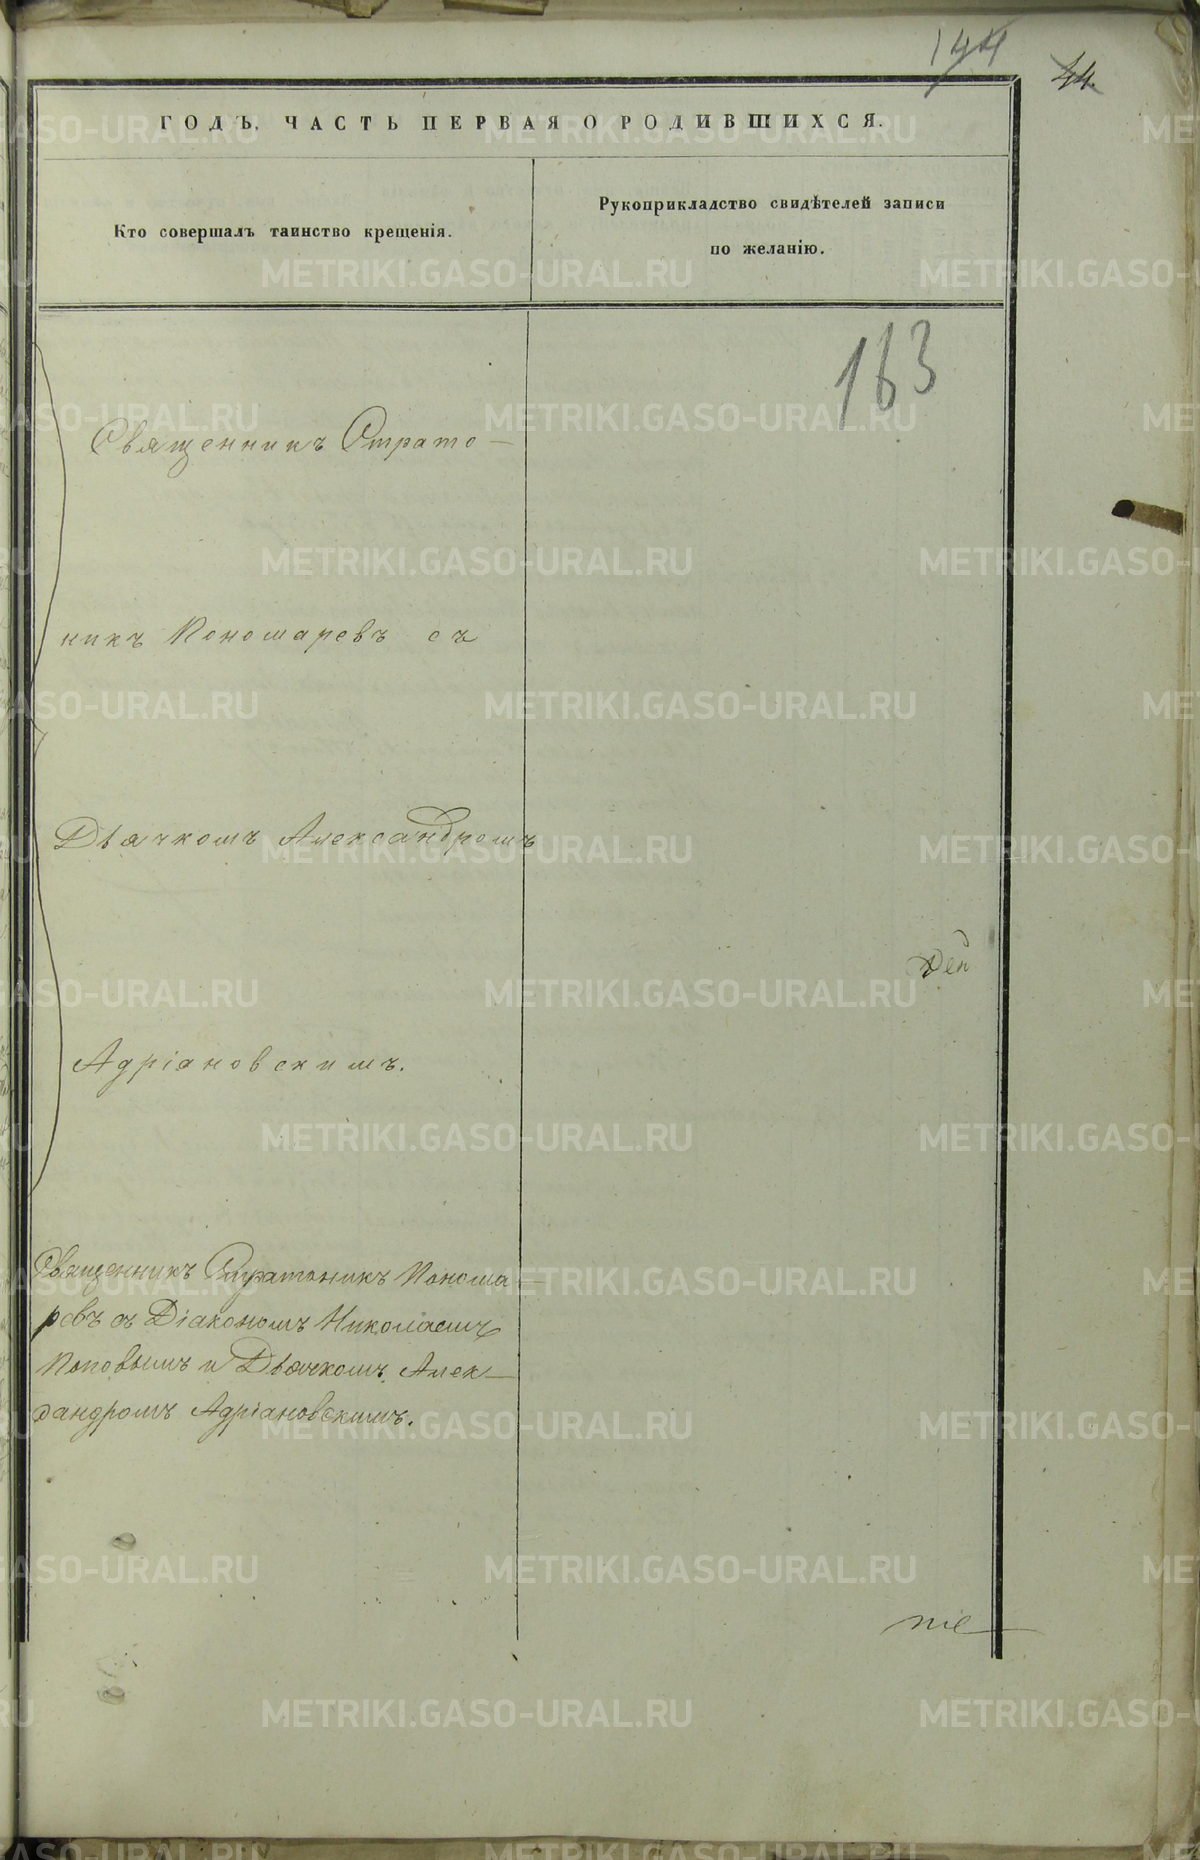 144
44.
ГОДЪ, ЧАСТЬ ПЕРВАЯ О РОДИВШИХСЯ.
Кто совершалъ таинство крещенія.
Рукоприкладство свидѣтелей записи
по желанію.
163
Священникъ Страто-
никъ Пономаревъ съ
Дьячкомъ Александромъ
Адріановскимъ.
Священникъ Стратоникъ Понома-
ревъ съ Діакономъ Николаемъ
Поповымъ и Дьячкомъ Алек-
сандромъ Адріановскимъ.
METRIKI.GASO-URAL.RU